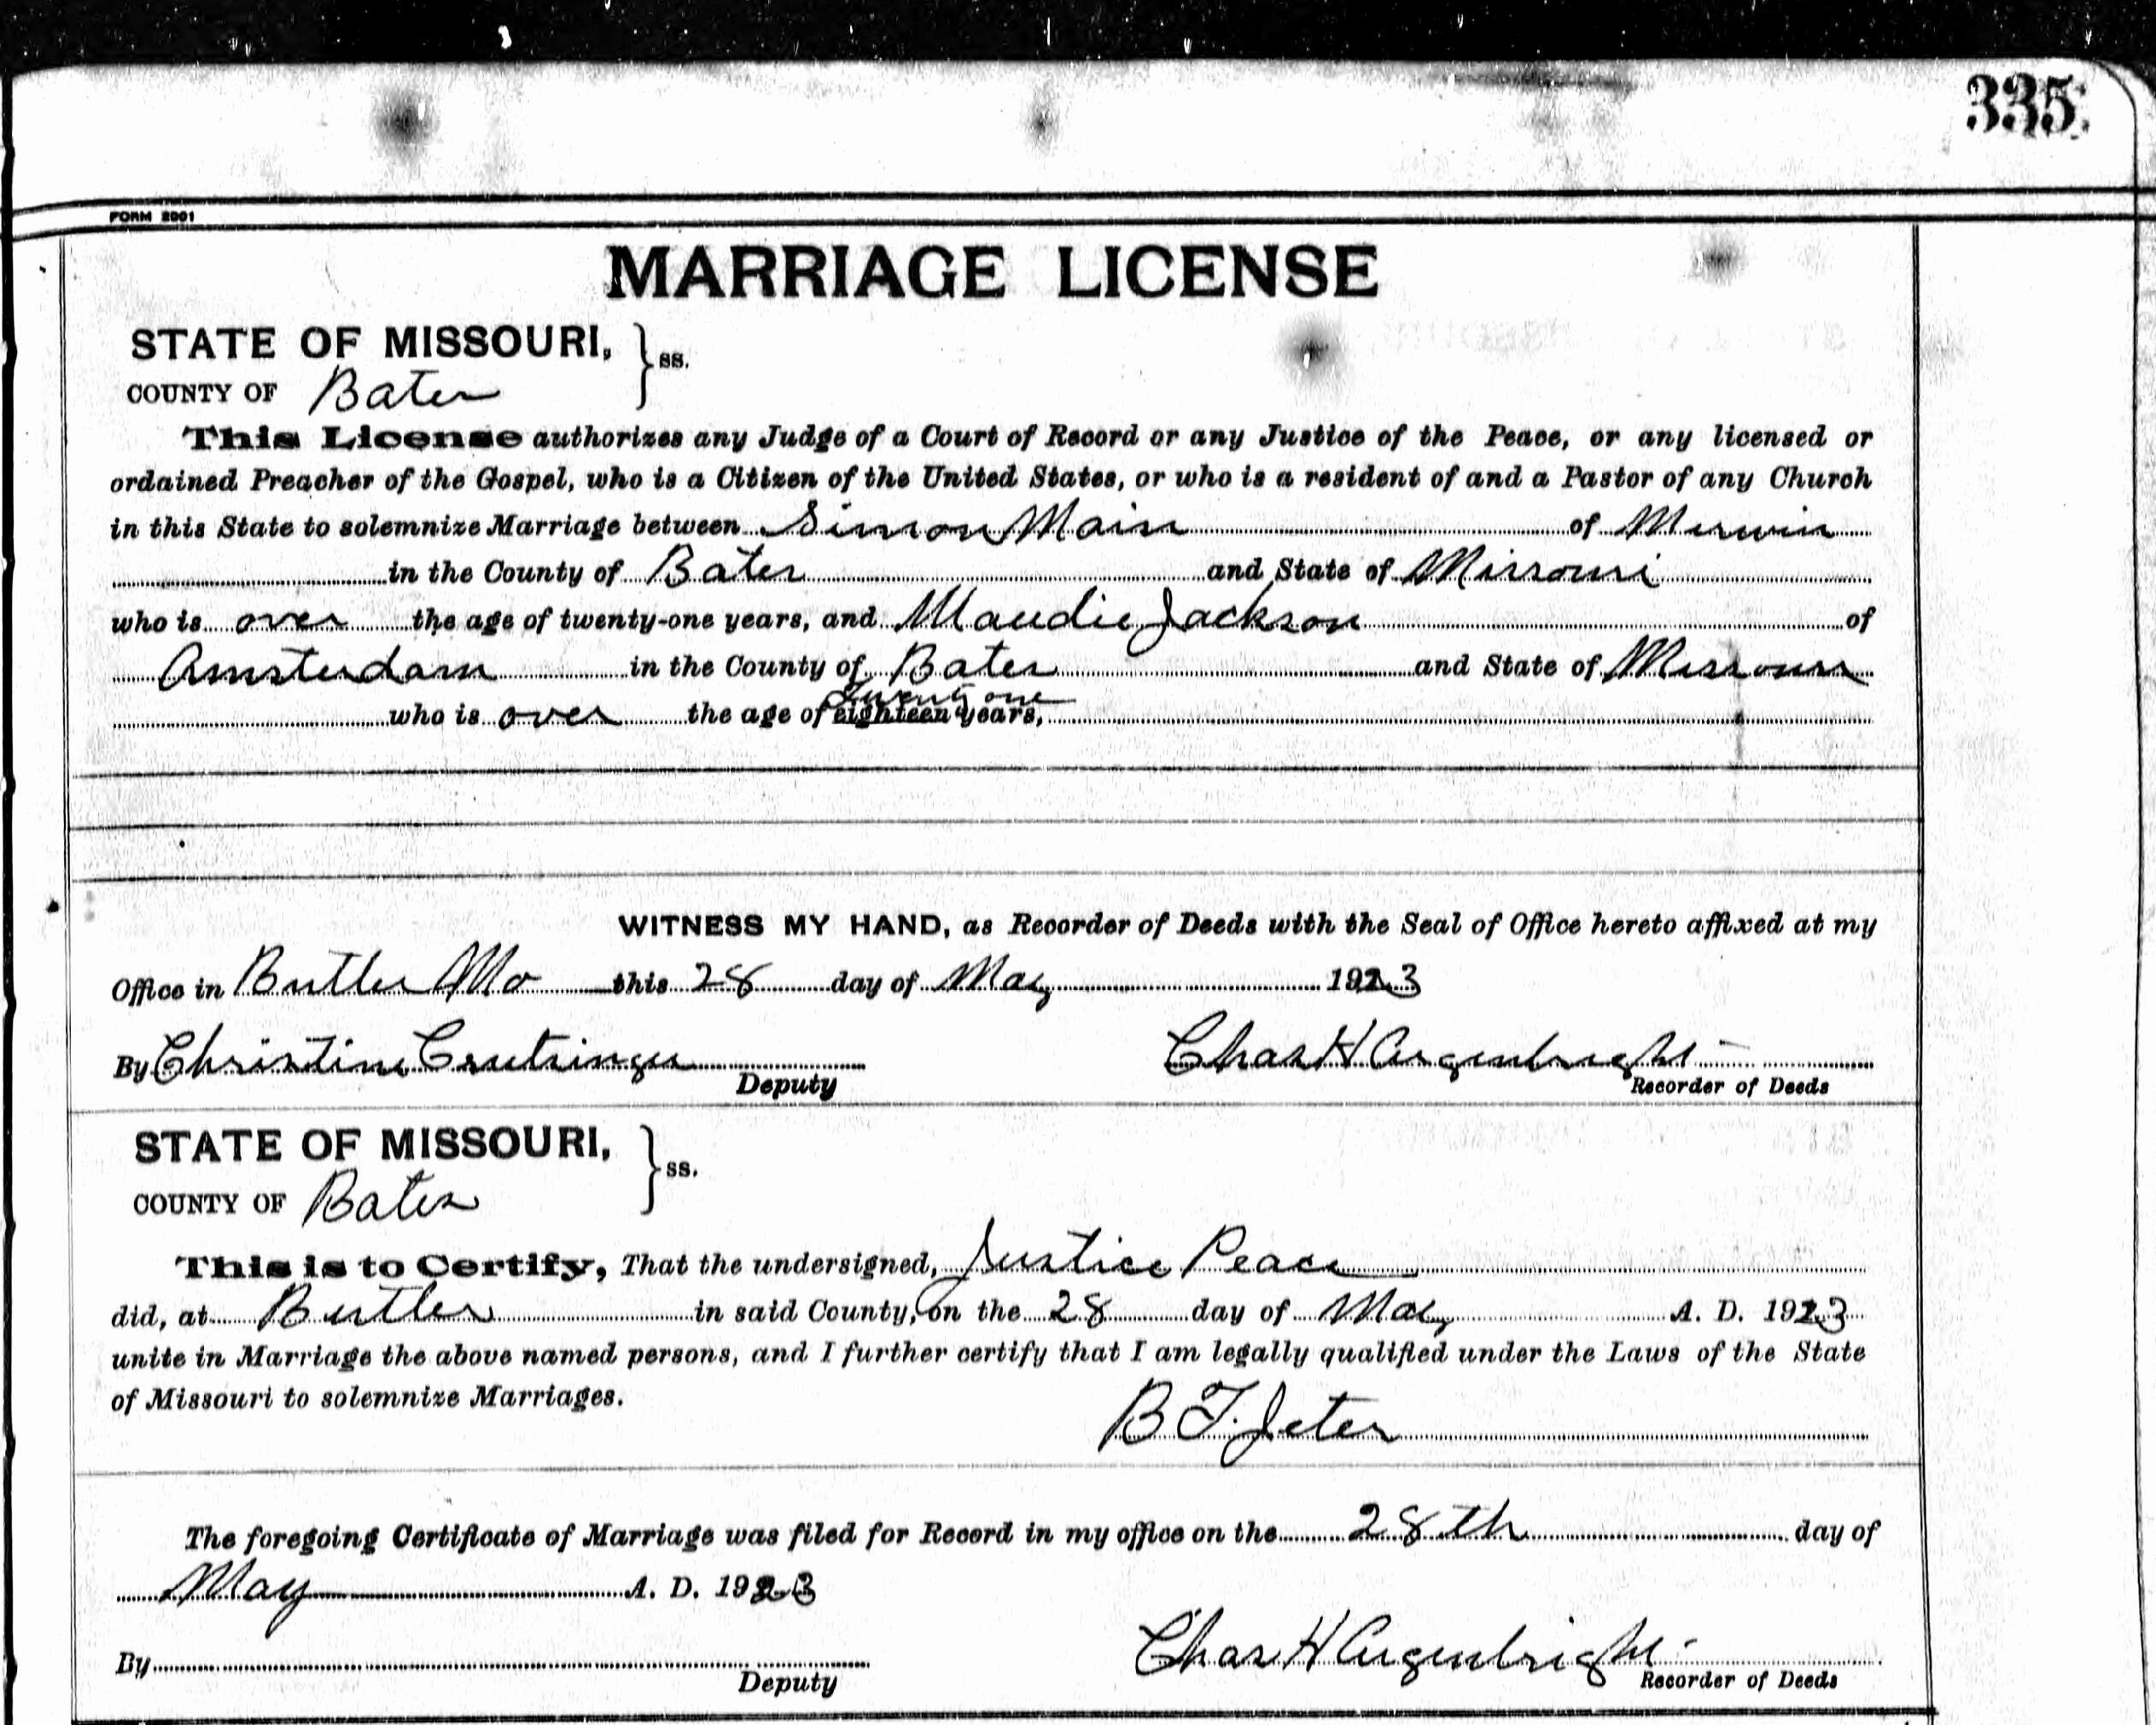 335
FORM 2001
MARRIAGE LICENSE
STATE OF MISSOURI,
ss.
COUNTY OF Bates
This License authorizes any Judge of a Court of Record or any Justice of the Peace, or any licensed or
ordained Preacher of the Gospel, who is a Citizen of the United States, or who is a resident of and a Pastor of any Church
in this State to solemnize Marriage between Simon Main of Merwin
in the County of Bates and State of Missouri
who is over the age of twenty-one years, and Maudie Jackson of
Amsterdam in the County of Bates and State of Missouri
twenty one
who is over the age of eighteen years,
WITNESS MY HAND, as Recorder of Deeds with the Seal of Office hereto affixed at my
Office in Butler Mo this 28 day of May 1923
By Christine Crutsinger Chas H Argenbright
Deputy Recorder of Deeds
STATE OF MISSOURI,
ss.
COUNTY OF Bates
This is to Certify, That the undersigned, Justice Peace
did, at Butler in said County, on the 28 day of May A. D. 1923
unite in Marriage the above named persons, and I further certify that I am legally qualified under the Laws of the State
of Missouri to solemnize Marriages.
B F. Jeter
The foregoing Certificate of Marriage was filed for Record in my office on the 28th day of
May A. D. 1923
By Chas H Argenbright
Deputy Recorder of Deeds